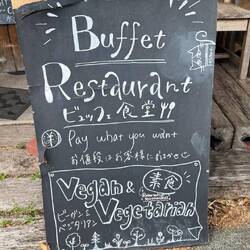 Buffet
Restaurant
ビュッフェ食堂
¥ Pay what you want
お値段はお客様におまかせ
Vegan & 素食
Vegetarian
ビーガン&
ベジタリアン